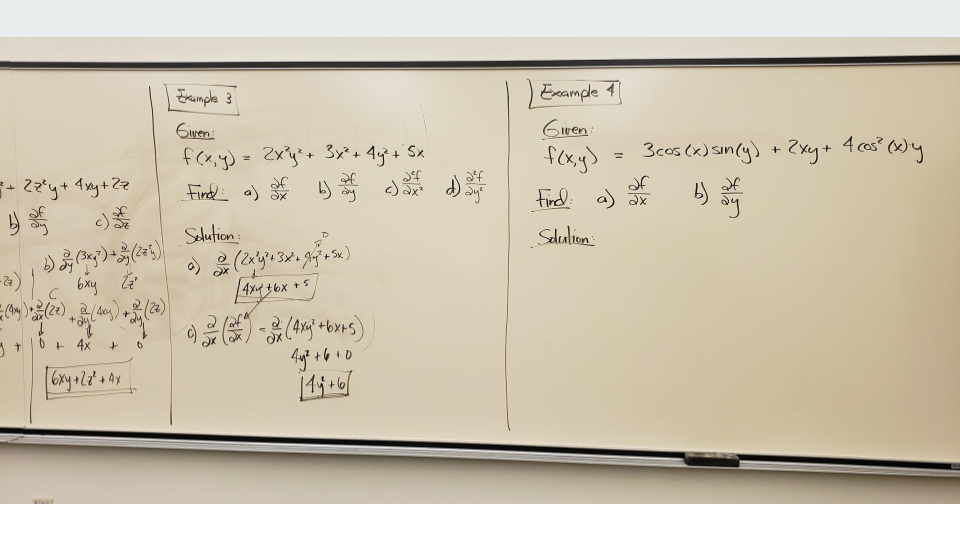 + 2z²y + 4xy + 2z
b) ∂f/∂y c) ∂f/∂z
b) ∂/∂y (3xy²) + ∂/∂y (2z²y)
6xy 2z²
(4xy) + ∂/∂x (2z) + ∂/∂y (4xy) + ∂/∂y (2z)
+ 0 + 4x + 0
6xy + 2z² + 4x
Example 3
Given:
f(x,y) = 2x²y² + 3x² + 4y² + 5x
Find: a) ∂f/∂x b) ∂f/∂y c) ∂²f/∂x² d) ∂²f/∂y²
Solution:
0
a) ∂/∂x (2x²y² + 3x² + 4y² + 5x)
4xy² + 6x + 5
c) ∂/∂x (∂f/∂x) = ∂/∂x (4xy² + 6x + 5)
4y² + 6 + 0
4y² + 6
Example 4
Given:
f(x,y) = 3cos(x)sin(y) + 2xy + 4cos²(x)·y
Find: a) ∂f/∂x b) ∂f/∂y
Solution: